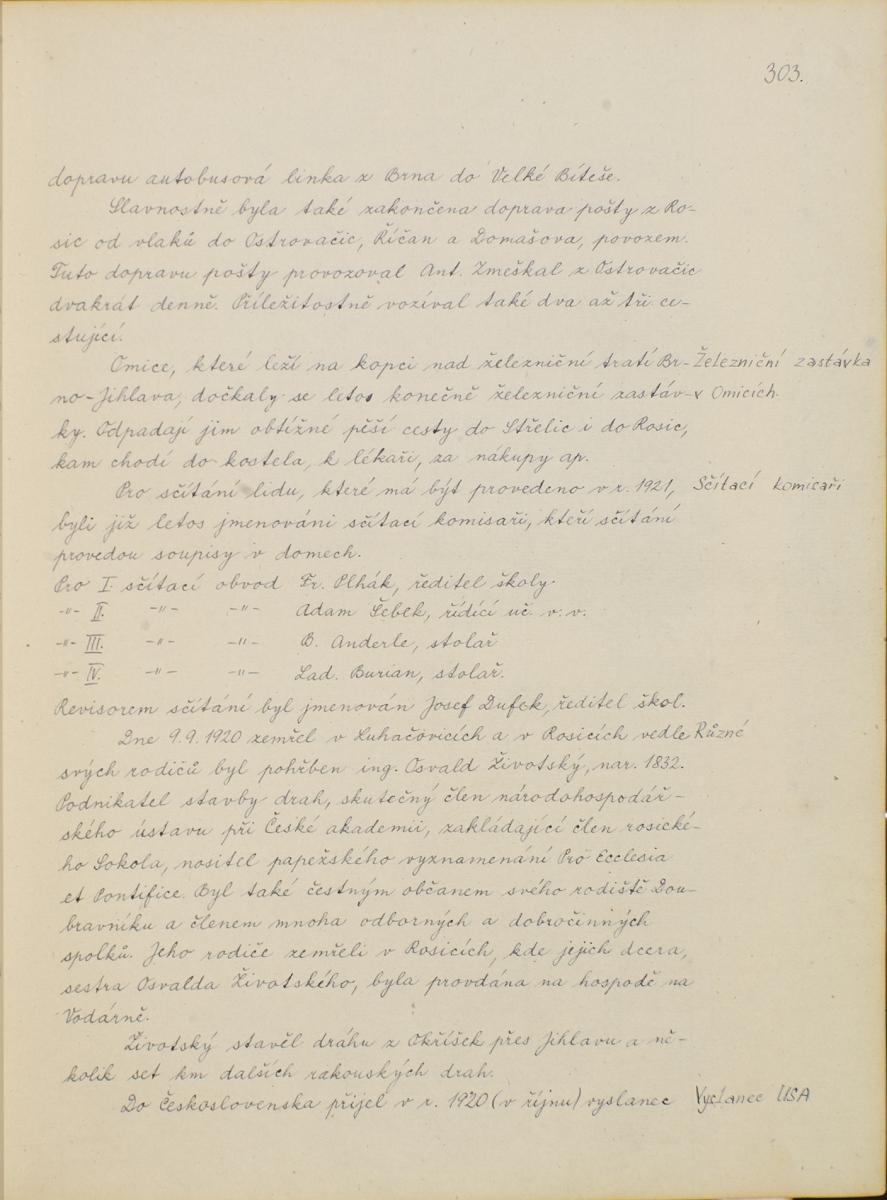 303.
dopravu autobusová linka z Brna do Velké Bíteše.
Slavnostně byla také zakončena doprava pošty z Ro-
sic od vlaků do Ostrovačic, Říčan a Domašova, povozem.
Tuto dopravu pošty provozoval Ant. Zmeškal z Ostrovačic
dvakrát denně. Příležitostně vozíval také dva až tři ce-
stující.
Omice, které leží na kopci nad železniční tratí Br- Železniční zastávka
no-Jihlava, dočkaly se letos konečně železniční zastáv- v Omicích.
ky. Odpadají jim obtížné pěší cesty do Střelic i do Rosic,
kam chodí do kostela, k lékaři, za nákupy ap.
Pro sčítání lidu, které má být provedeno v r. 1921, Sčítací komisaři
byli již letos jmenováni sčítací komisaři, kteří sčítání
provedou soupisy v domech.
Pro I. sčítací obvod Fr. Plhák, ředitel školy.
-"- II. -"- -"- Adam Šebek, řídící uč. v. v.
-"- III. -"- -"- B. Anderle, stolař
-"- IV. -"- -"- Lad. Burian, stolař.
Revisorem sčítání byl jmenován Josef Dufek, ředitel škol.
Dne 9.9.1920 zemřel v Luhačovicích a v Rosicích vedle Různé
svých rodičů byl pohřben ing. Osvald Životský, nar. 1832.
Podnikatel stavby drah, skutečný člen národohospodář-
ského ústavu při České akademii, zakládající člen rosické-
ho Sokola, nositel papežského vyznamenání Pro Ecclesia
et Pontifice. Byl také čestným občanem svého rodiště Dou-
bravníku a členem mnoha odborných a dobročinných
spolků. Jeho rodiče zemřeli v Rosicích, kde jejich dcera,
sestra Osvalda Životského, byla provdána na hospodě na
Vodárně.
Životský stavěl dráhu z Okříšek přes Jihlavu a ně-
kolik set km dalších rakouských drah.
Do Československa přijel v r. 1920 (v říjnu) vyslanec Vyslanec USA